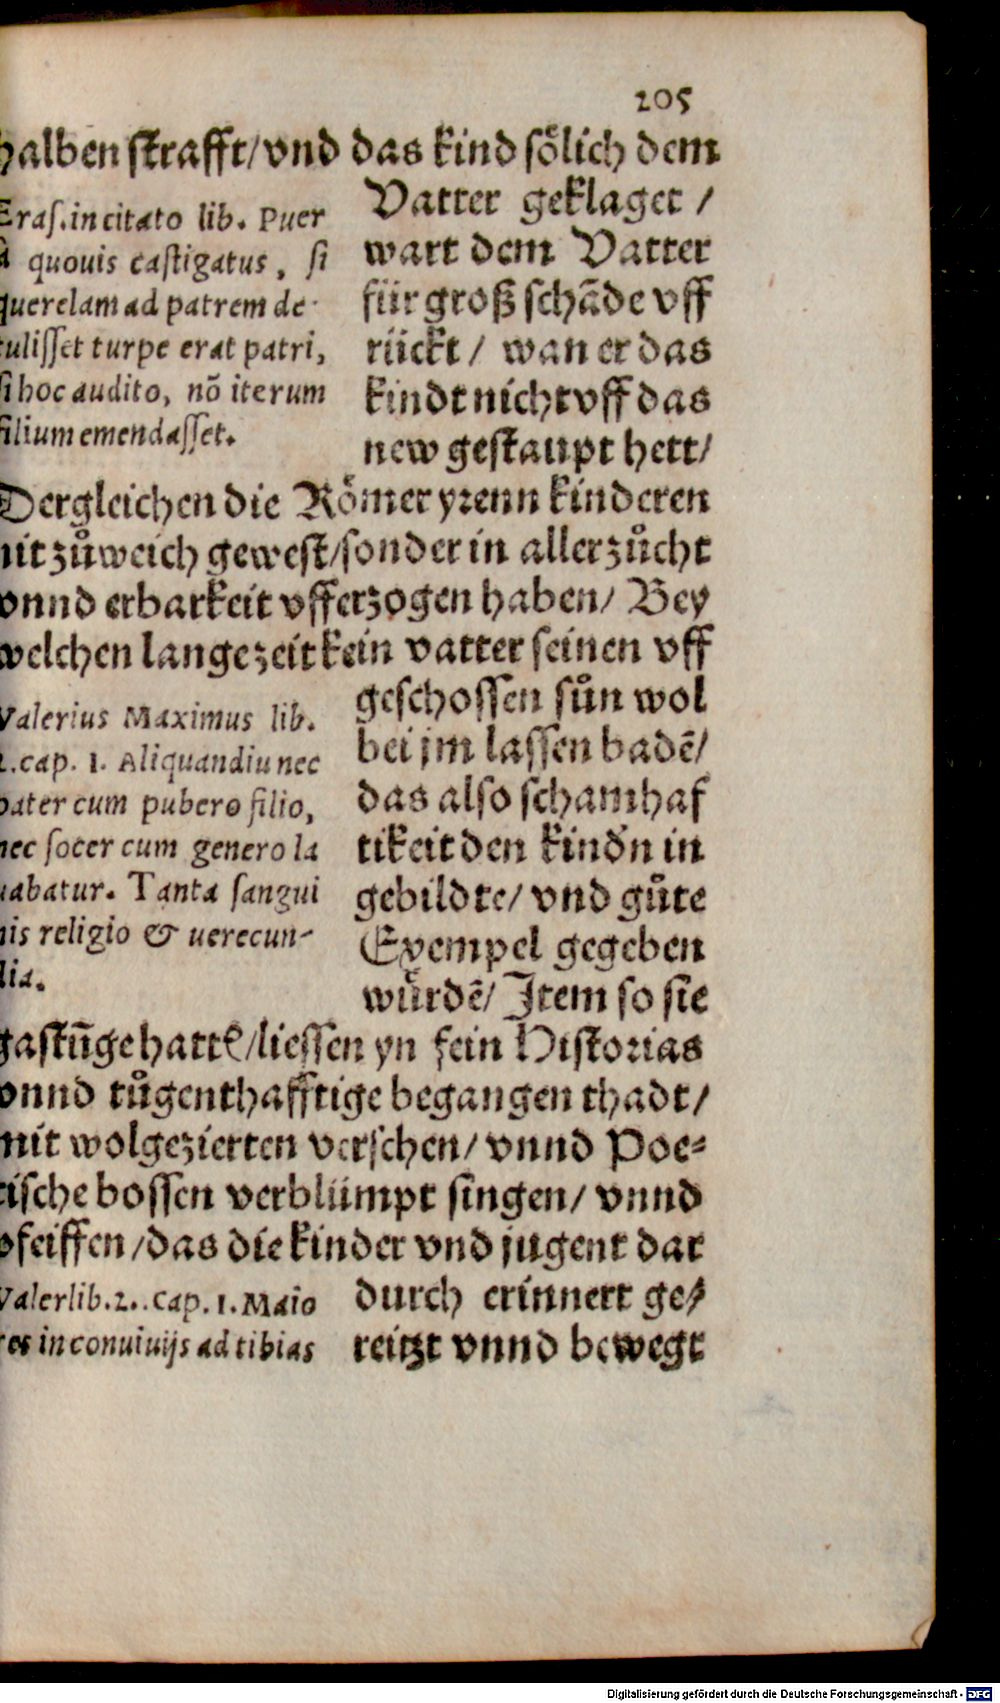 205
halben strafft/vnd das kind soͤlich dem
Vatter geklaget /
wart dem Vatter
für groß schāde vff
rückt / wan er das
kindt nicht vff das
new gestaupt hett/
Eras. in citato lib. Puer
à quouis castigatus, si
querelam ad patrem de-
tulisset turpe erat patri,
si hoc audito, nō iterum
filium emendasset.
Dergleichen die Roͤmer yrenn kinderen
nit zůweich gewest/sonder in aller zůcht
vnnd erbarkeit vfferzogen haben/ Bey
welchen lange zeit kein vatter seinen vff
geschossen sůn wol
bei jm lassen badē/
das also schamhaf
tikeit den kindn in
gebildte/ vnd gůte
Exempel gegeben
würdē/ Item so sie
Valerius Maximus lib.
2.cap. 1. Aliquandiu nec
pater cum pubero filio,
nec socer cum genero la
uabatur. Tanta sangui
nis religio & uerecun-
dia.
gastūge hattē/liessen yn fein Historias
vnnd tůgenthafftige begangen thadt/
mit wolgezierten verschen/ vnnd Poe-
tische bossen verblümpt singen/ vnnd
pfeiffen/das die kinder vnd jugent dar
durch erinnert ge-
reitzt vnnd bewegt
Valer lib.2..cap.1. Maio
res in conuiuijs ad tibias
Digitalisierung gefördert durch die Deutsche Forschungsgemeinschaft - DFG